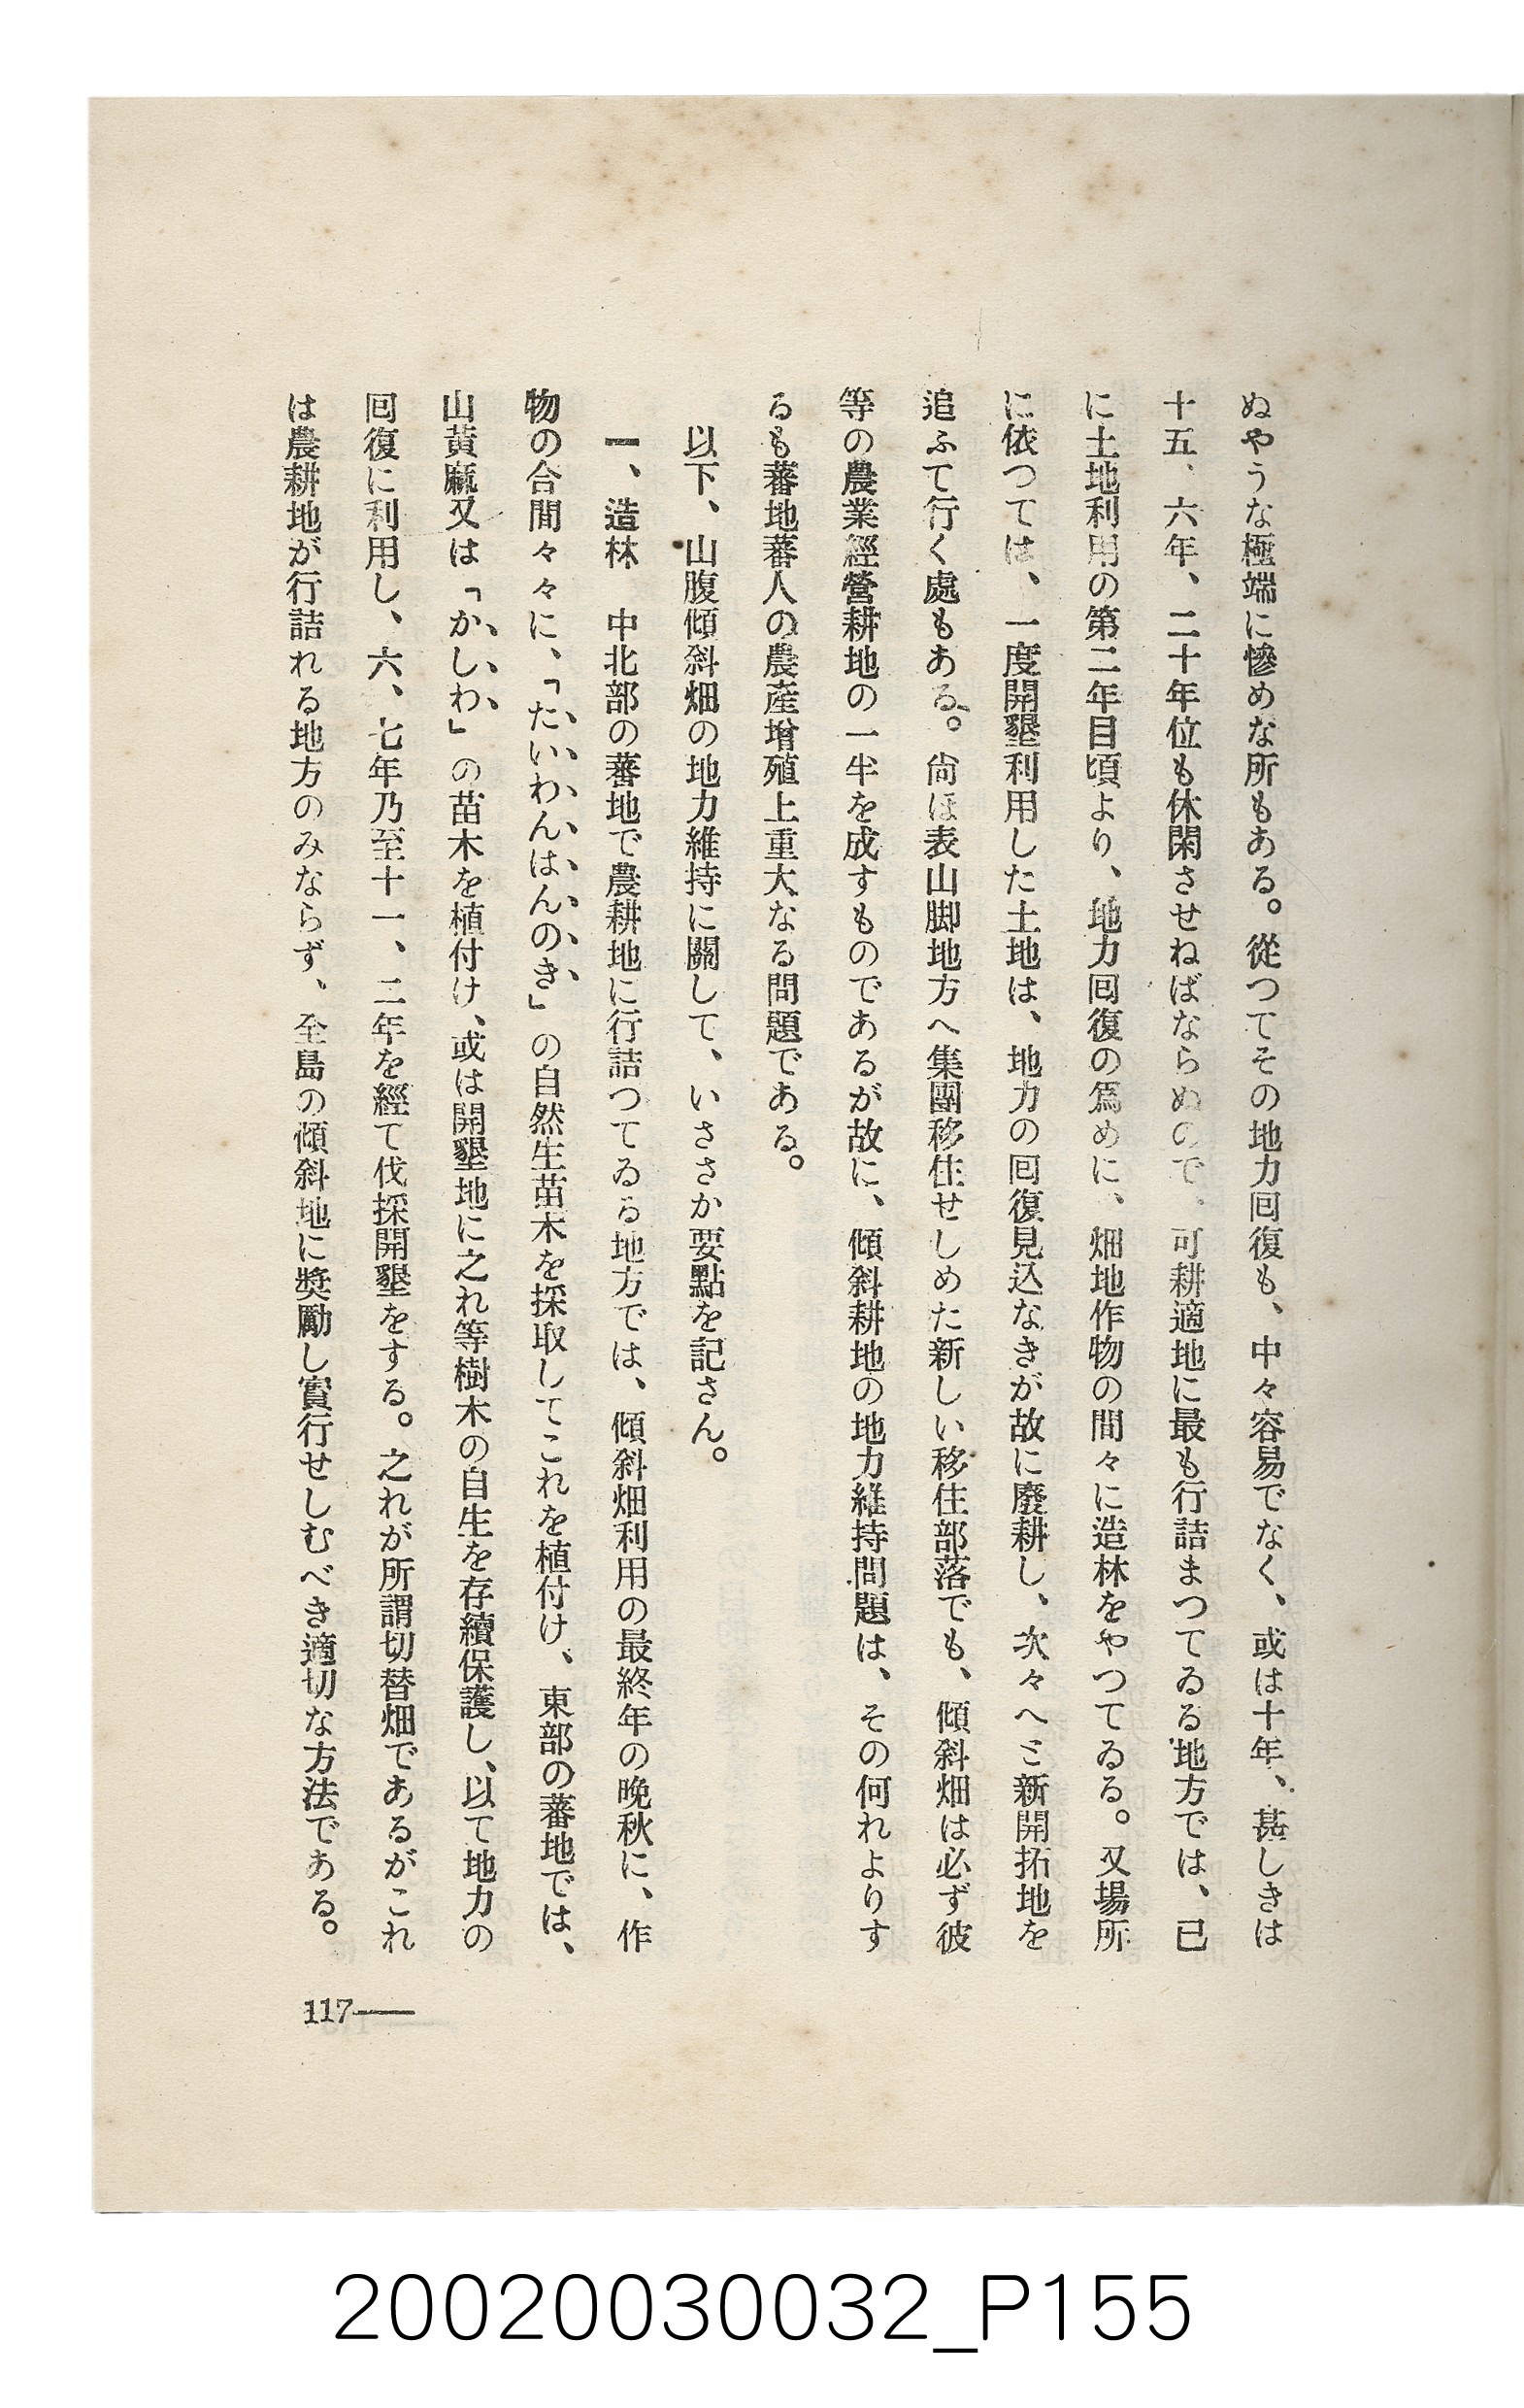 ぬやうな極端に慘めな所もある。從つてその地力回復も、中々容易でなく、或は十年、甚しきは
十五、六年、二十年位も休閑させねばならぬので、可耕適地に最も行詰まつてゐる地方では、已
に土地利用の第二年目頃より、地力回復の爲めに、畑地作物の間々に造林をやつてゐる。又場所
に依つては、一度開墾利用した土地は、地力の回復見込なきが故に廢耕し、次々へと新開拓地を
追ふて行く處もある。尚ほ表山脚地方へ集團移住せしめた新しい移住部落でも、傾斜畑は必ず彼
等の農業經營耕地の一半を成すものであるが故に、傾斜耕地の地力維持問題は、その何れよりす
るも蕃地蕃人の農産增殖上重大なる問題である。
以下、山腹傾斜畑の地力維持に關して、いささか要點を記さん。
一、造林　中北部の蕃地で農耕地に行詰つてゐる地方では、傾斜畑利用の最終年の晩秋に、作
物の合間々々に、「たいわんはんのき」の自然生苗木を採取してこれを植付け、東部の蕃地では、
山黃麻又は「かしわ」の苗木を植付け、或は開墾地に之れ等樹木の自生を存續保護し、以て地力の
回復に利用し、六、七年乃至十一、二年を經て伐採開墾をする。之れが所謂切替畑であるがこれ
は農耕地が行詰れる地方のみならず、全島の傾斜地に獎勵し實行せしむべき適切な方法である。
117——
20020030032_P155